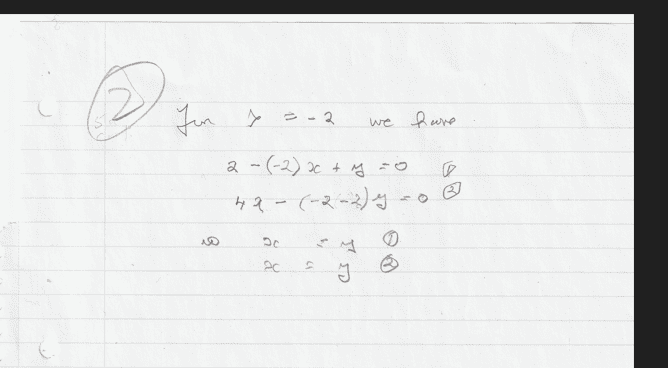 2
For λ = -2 we have
2 - (-2) x + y = 0 ①
4x - (-2-2) y = 0 ②
so x = y ①
x = y ②